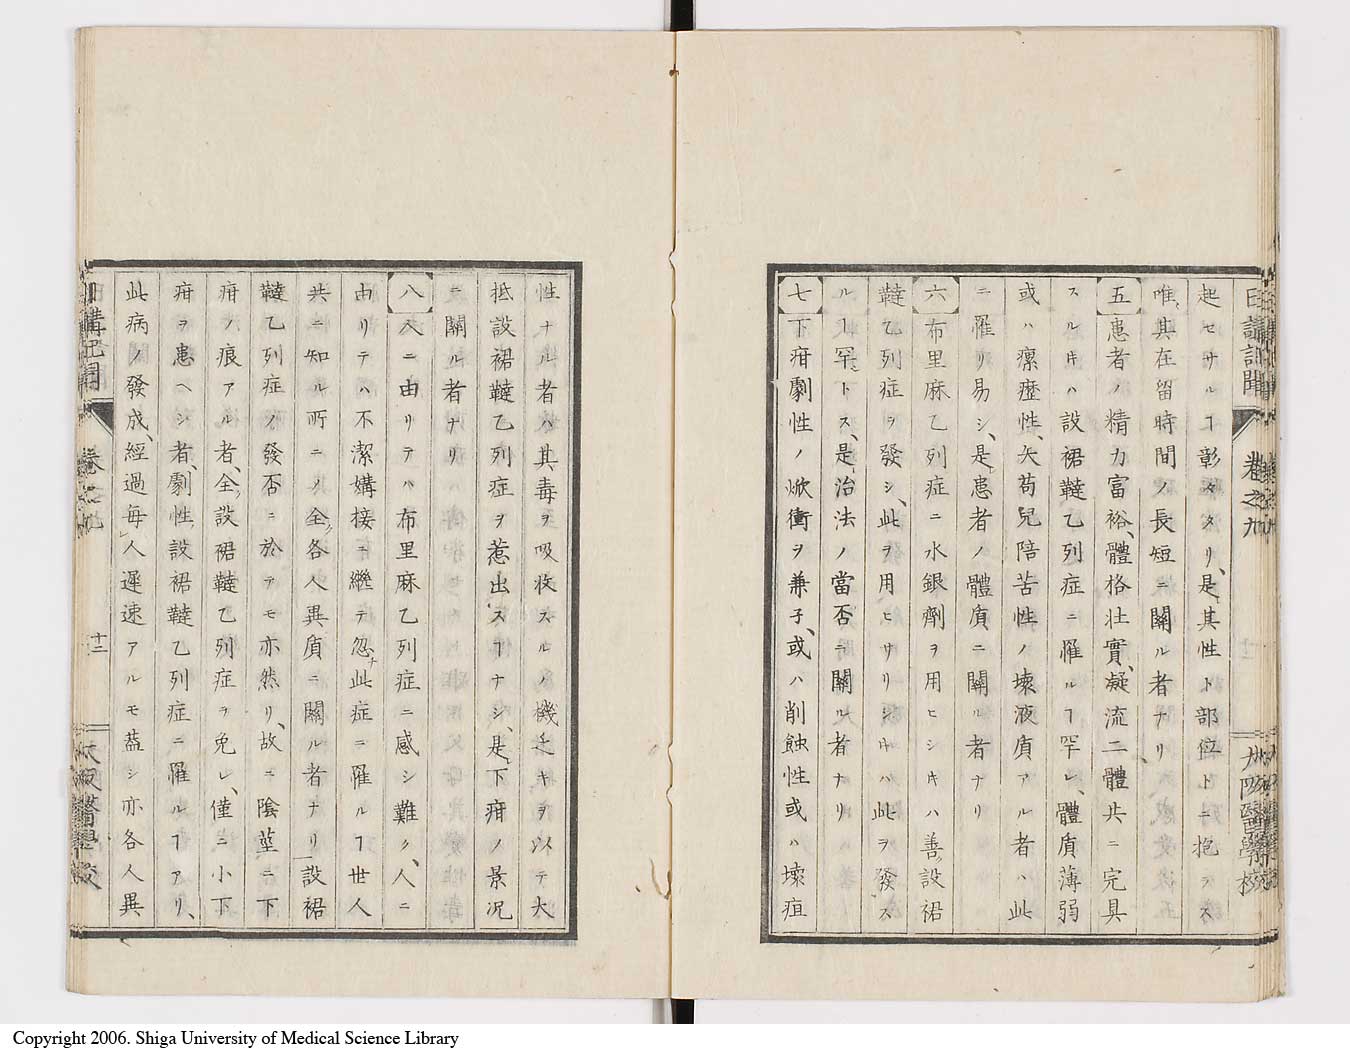 日講記聞 卷之九 大阪醫學校
起セサルヿ彰々タリ、是、其性ト部位トニ抱ラス
唯、其在留時間ノ長短ニ關ル者ナリ、
五 患者ノ精力富裕、體格壮實、凝流二體共ニ完具
スルキハ設裙韃乙列症ニ罹ルヿ罕レ、體質薄弱
或ハ瘰癧性、矢苟兒陪苦性ノ壊液質アル者ハ此
ニ罹リ易シ、是、患者ノ體質ニ關ル者ナリ
六 布里麻乙列症ニ水銀劑ヲ用ヒシキハ善、設裙
韃乙列症ヲ發シ、此ヲ用ヒサリシキハ此ヲ發ス
ルヿ罕、トス、是、治法ノ當否ニ關ル者ナリ
七 下疳劇性ノ焮衝ヲ兼子、或ハ削蝕性或ハ壊疽
性ナル者ハ其毒ヲ吸收スルノ機乏キヲ以テ大
抵設裙韃乙列症ヲ惹出スヿナシ、是、下疳ノ景况
ニ關ル者ナリ
八 人ニ由リテハ布里麻乙列症ニ感シ難ク、人ニ
由リテハ不潔媾接ニ繼テ忽チ此症ニ罹ルヿ世人
共ニ知ル所ニメ全、各人異質ニ關ル者ナリ設裙
韃乙列症ノ發否ニ於テモ亦然リ、故ニ陰莖ニ下
疳ノ痕アル者、全、設裙韃乙列症ヲ免レ、僅ニ小下
疳ヲ患ヘシ者、劇性設裙韃乙列症ニ罹ルヿアリ、
此病ノ發成、經過毎人遲速アルモ葢シ亦各人異
日講記聞 卷之九 十二 大阪醫學校
Copyright 2006. Shiga University of Medical Science Library